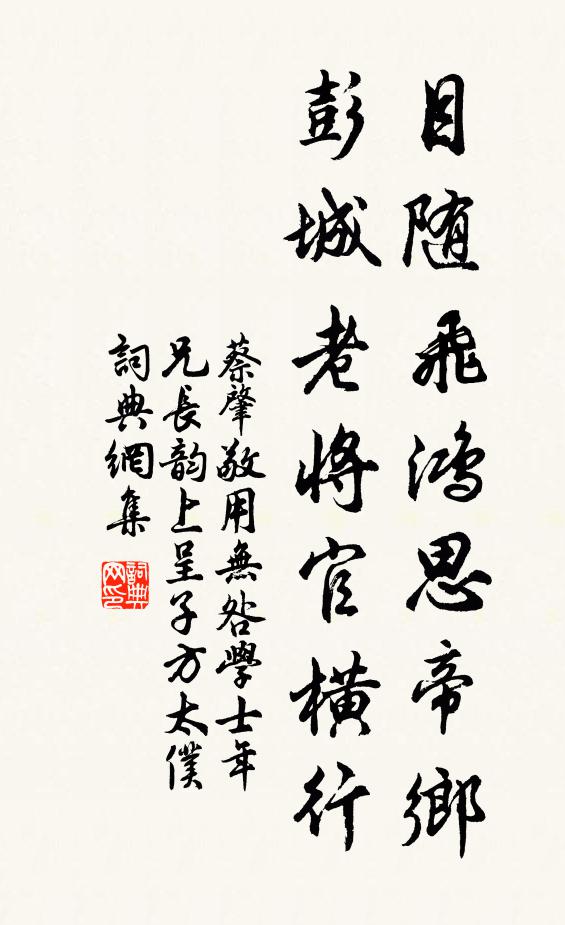 目随飛鴻思帝鄉
彭城老將官橫行
蔡肇敬用無咎學士年
兄長韵上呈子方太僕
詞典網集
詞典网印